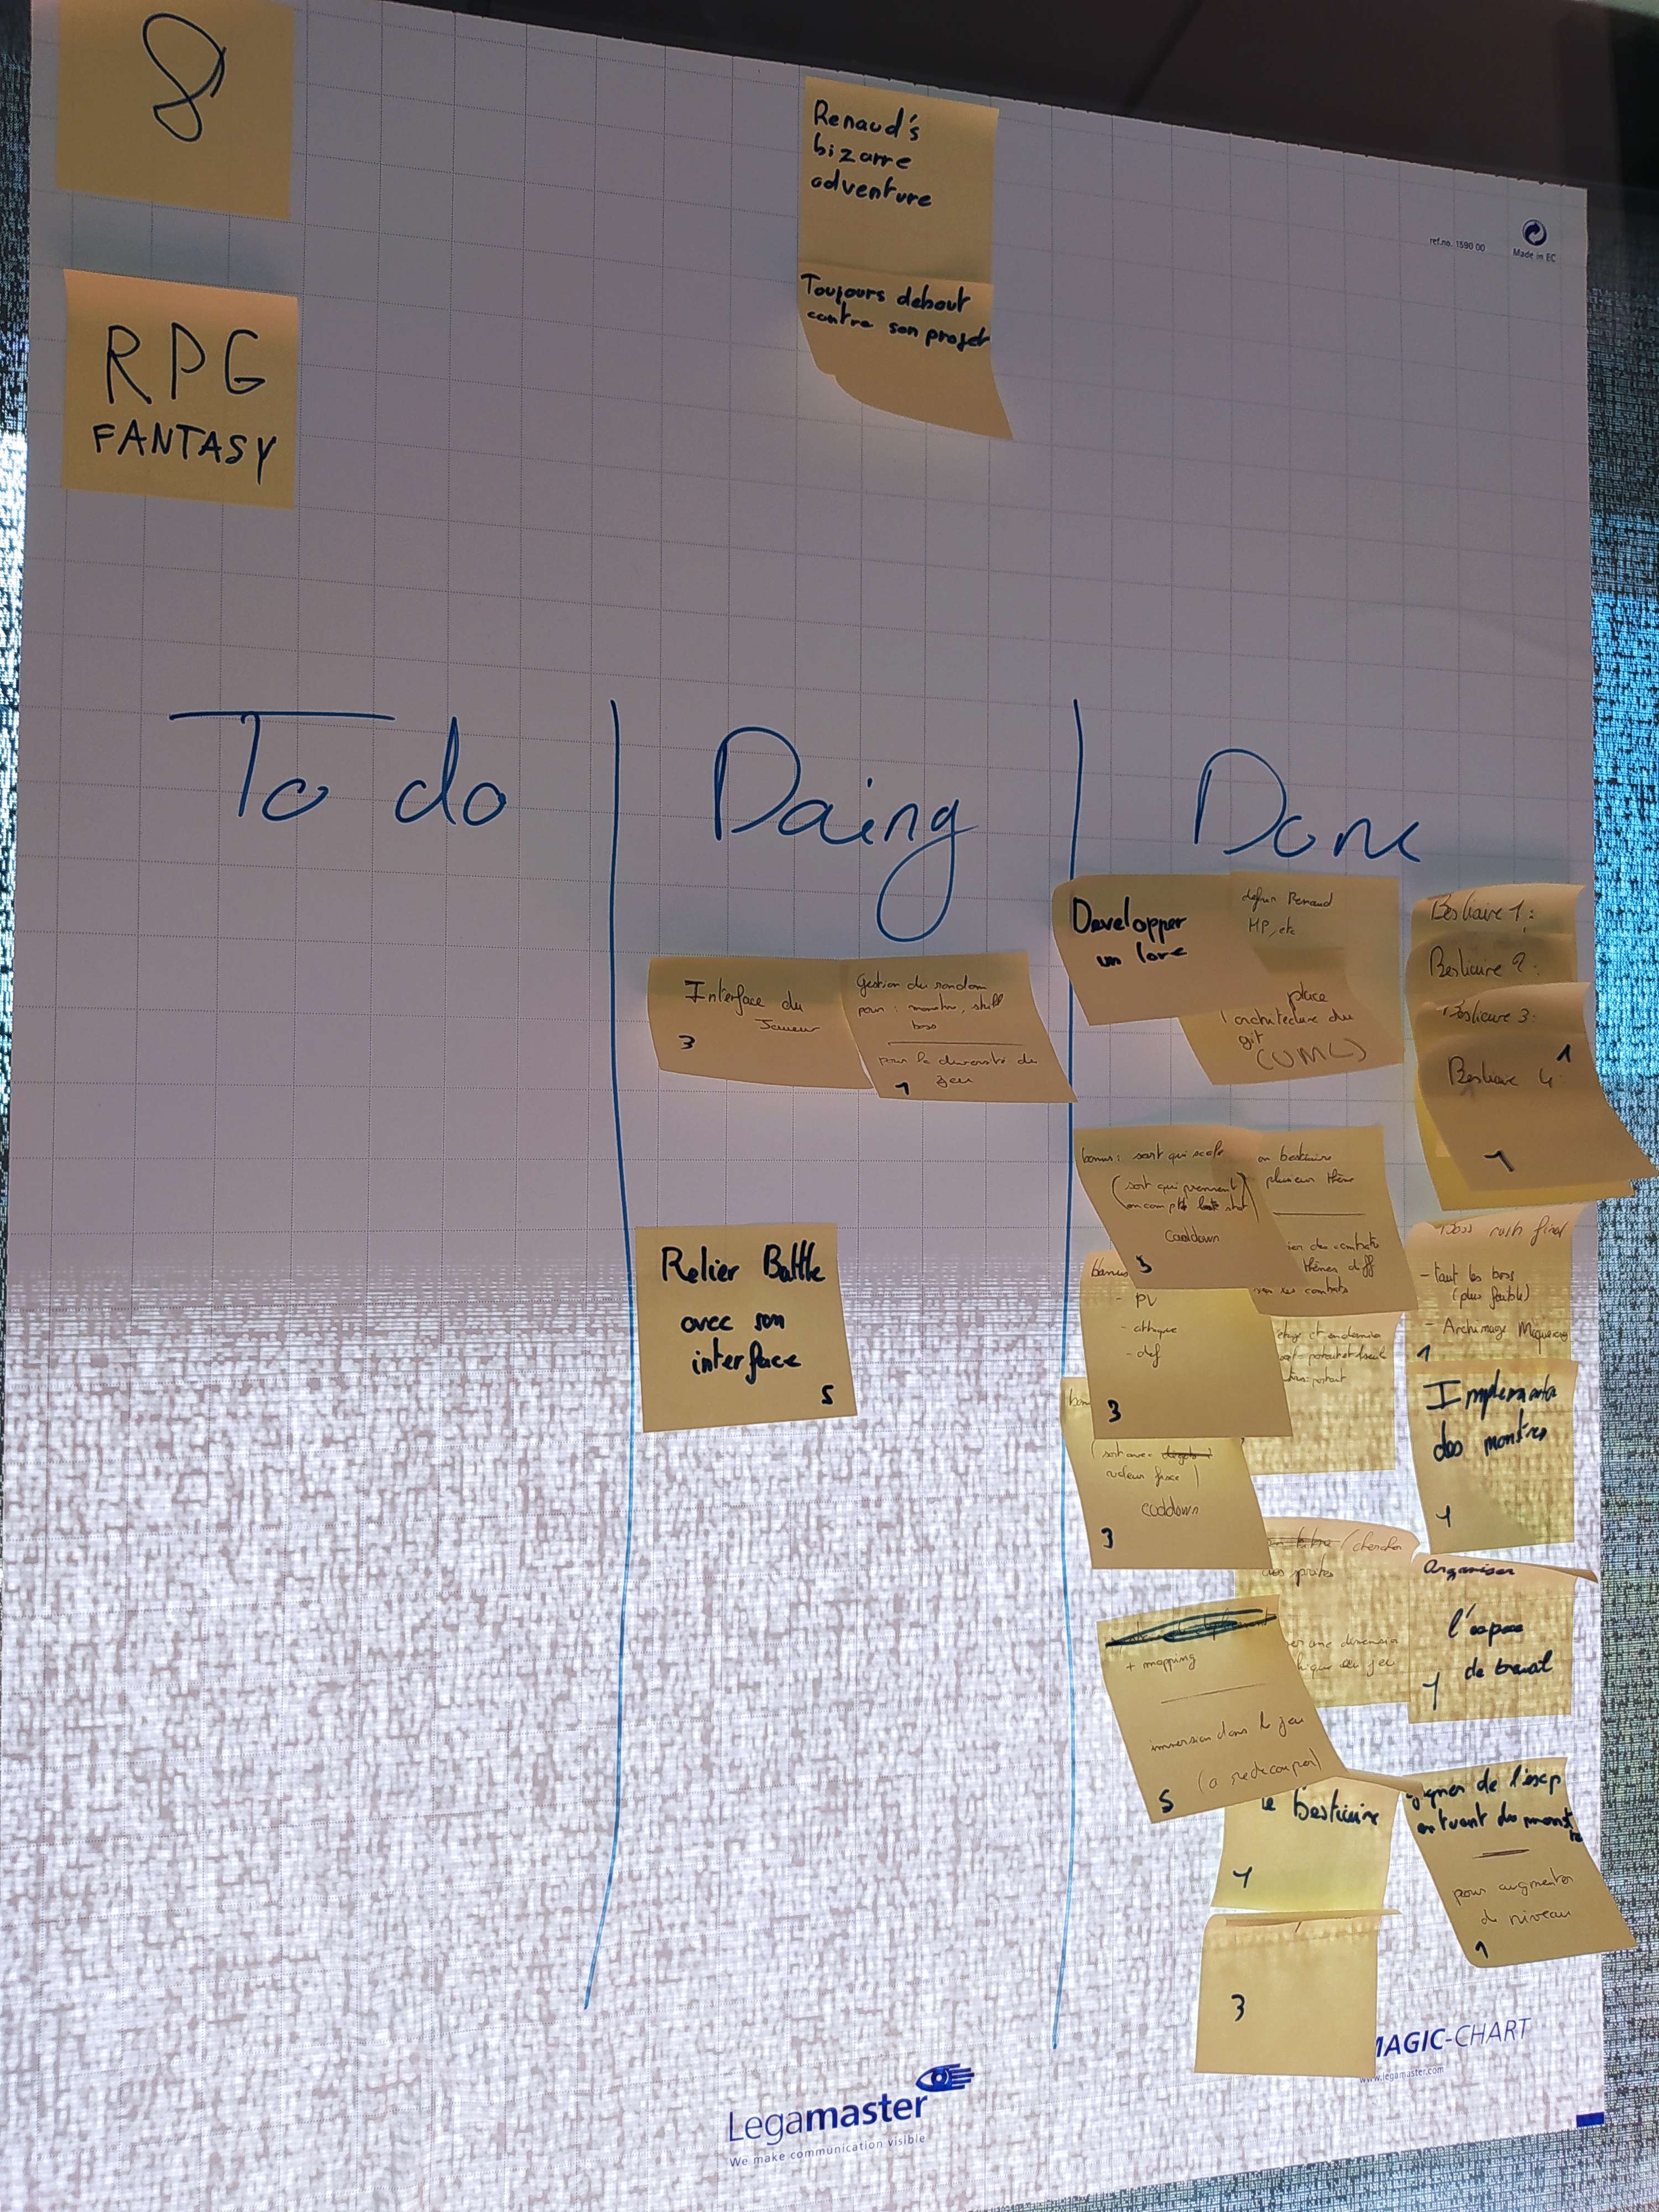 8
RPG
FANTASY
Renaud's
bizarre
adventure
Toujours debout
contre son projet
ref.no. 1590 00
Made in EC
To do
Doing
Done
Interface du
Joueur
3
Gestion du random
pour : monstre, skill
boss
pour la diversité du
jeu
1
Relier Battle
avec son
interface
5
Developper
un lore
définir Renaud
HP, etc
place
l'architecture du
git
(UML)
Bestiaire 1 :
Bestiaire 2 :
Bestiaire 3 :
1
Bestiaire 4 :
1
bonus : sort qui scale
(sort qui prennent
en compte stat)
Cooldown
3
un bestiaire
plusieur thème
des combats
thèmes diff
combats
bonus
- PV
- attaque
- def
3
bon
(sort avec dégats
valeur fixe)
cooldown
3
Boss rush final
- tout les boss
(plus faible)
- Archimage
1
Implementer
des montres
1
/ chercher
une dimension
au jeu
Organiser
l'espace
de travail
1
+ mapping
immersion dans le jeu
(a redecouper)
5
le bestiaire
1
3
gagner de l'exp
en tuant des monstre
pour augmenter
de niveau
1
MAGIC-CHART
www.legamaster.com
Legamaster
We make communication visible